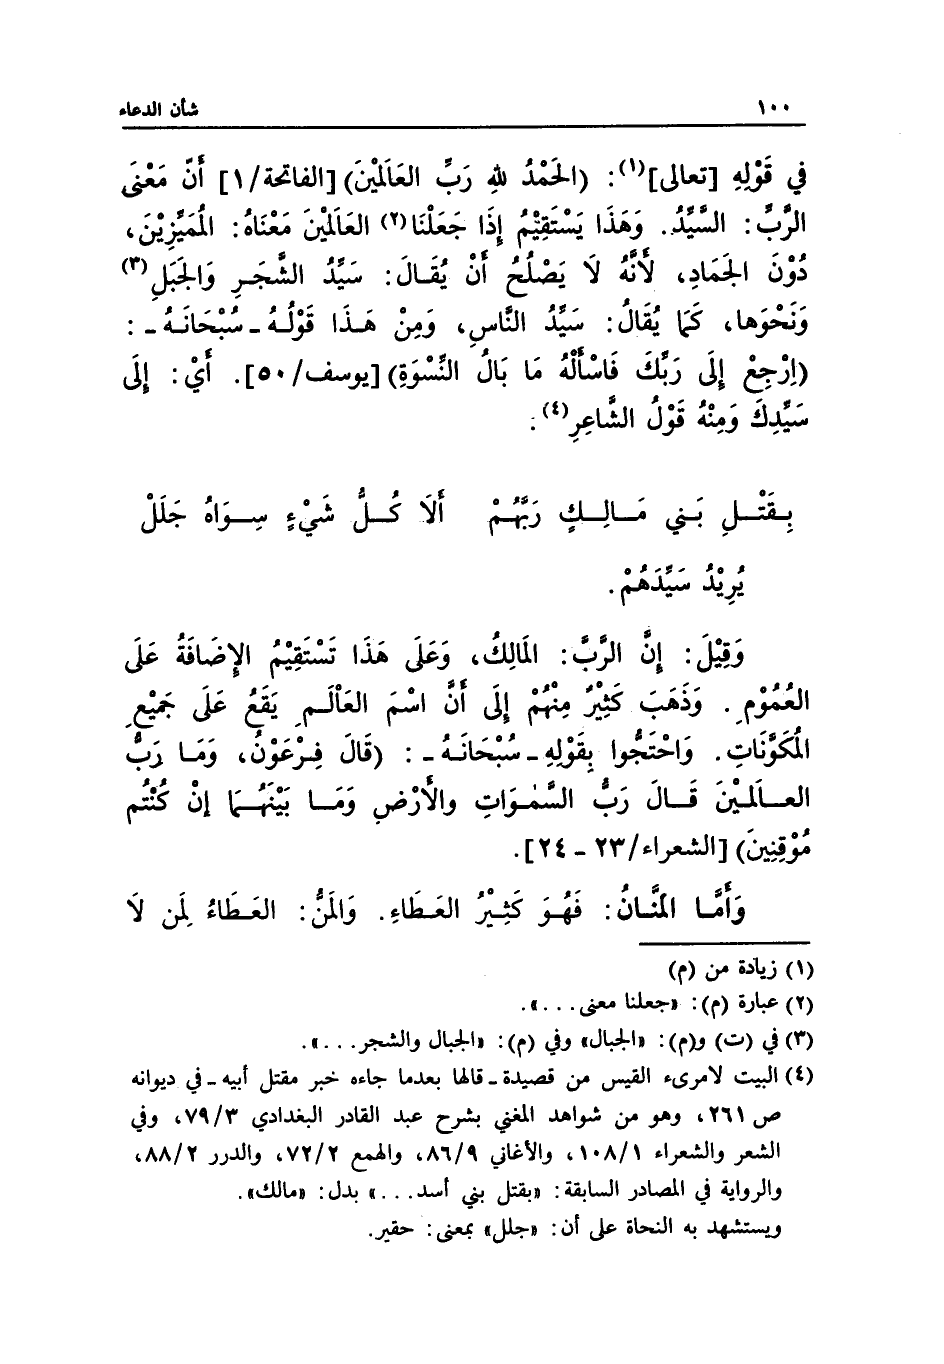 ١٠٠ شأن الدعاء
في قَوْلِهِ [تعالى](١): (الحَمْدُ للهِ رَبِّ العَالَمْينَ) [الفاتحة/١] أَنَّ مَعْنَى
الرَّبِّ: السَّيِّدُ. وَهَذَا يَسْتَقِيْمُ إِذَا جَعَلْنَا(٢) العَالَمْينَ مَعْنَاهُ: الُمَمِّيزِيْنَ،
دُوْنَ الجَمَادِ، لأَنَّهُ لَا يَصْلُحُ أَنْ يُقَالَ: سَيِّدُ الشَّجَرِ وَالجَبَلِ(٣)
وَنَحْوِها، كَمَا يُقَالُ: سَيِّدُ النَّاسِ، وَمِنْ هَذَا قَوْلُهُ ـ سُبْحَانَهُ ـ :
(اِرْجِعْ إِلَى رَبِّكَ فَاسْأَلْهُ مَا بَالُ النِّسْوَةِ) [يوسف/٥٠]. أَيْ: إِلَى
سَيِّدِكَ وَمِنْهُ قَوْلُ الشَّاعِرِ(٤):
بِقَتْلِ بَنِي مَالِكٍ رَبَّهُمْ أَلَا كُلُّ شَيْءٍ سِوَاهُ جَلَلْ
يُرِيْدُ سَيِّدَهُمْ.
وَقِيْلَ: إِنَّ الرَّبَّ: المَالِكُ، وَعَلَى هَذَا تَسْتَقِيْمُ الإِضَافَةُ عَلَى
العُمُوْمِ. وَذَهَبَ كَثِيْرٌ مِنْهُمْ إِلَى أَنَّ اسْمَ العَاْلَمِ يَقَعُ عَلَى جَمِيْعِ
المُكَوَّنَاتِ. وَاحْتَجُّوا بِقَوْلِهِ ـ سُبْحَانَهُ ـ : (قَالَ فِرْعَوْنُ، وَمَا رَبُّ
العَالَمْينَ قَالَ رَبُّ السَّمٰوَاتِ والأَرْضِ وَمَا بَيْنَهُمَا إنْ كُنْتُم
مُوْقِنِينَ) [الشعراء/٢٣ ـ ٢٤].
وَأَمَّا المَنَّانُ: فَهُوَ كَثِيْرُ العَطَاءِ. وَالمَنُّ: العَطَاءُ لِمَن لَا
(١) زيادة من (م)
(٢) عبارة (م): «جعلنا معنى...».
(٣) في (ت) و(م): «الجبال» وفي (م): «الجبال والشجر...».
(٤) البيت لامرىء القيس من قصيدة ـ قالها بعدما جاءه خبر مقتل أبيه ـ في ديوانه
ص ٢٦١، وهو من شواهد المغني بشرح عبد القادر البغدادي ٧٩/٣، وفي
الشعر والشعراء ١٠٨/١، والأغاني ٨٦/٩، والهمع ٧٢/٢، والدرر ٨٨/٢،
والرواية في المصادر السابقة: «بقتل بني أسد...» بدل: «مالك».
ويستشهد به النحاة على أن: «جلل» بمعنى: حقير.